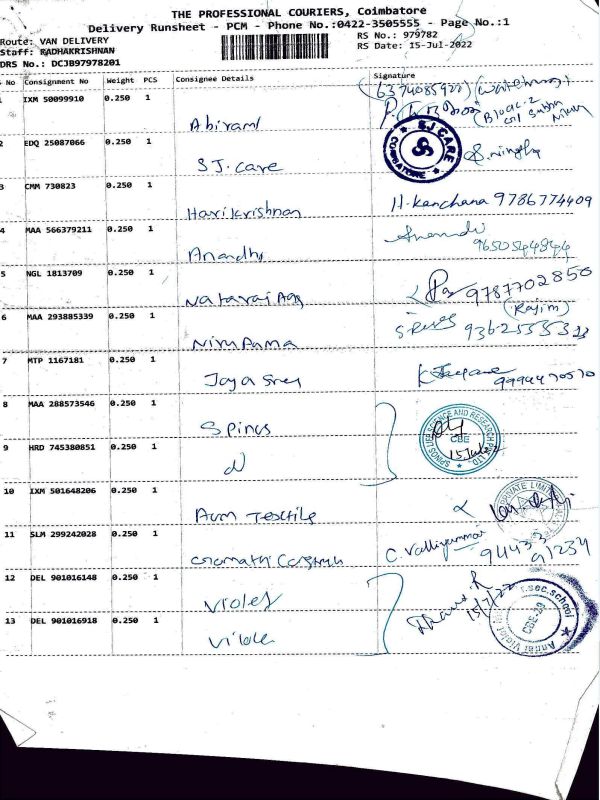 THE PROFESSIONAL COURIERS, Coimbatore
Delivery Runsheet - PCM - Phone No.:0422-3505555 - Page No.:1
Route: VAN DELIVERY
RS No.: 979782
Staff: RADHAKRISHNAN
RS Date: 15-Jul-2022
DRS No.: DCJB97978201
No Consignment No Weight PCS Consignee Details Signature
IXM 50099910 0.250 1 Abirami
(6374085922) (watchman)
Block-2
2 EDQ 25087066 0.250 1 S J. care
S.J CARE
COIMBATORE
3 CMM 730823 0.250 1 Harikrishnan H. Kanchana 9786774409
4 MAA 566379211 0.250 1 Anandhi Anandi
9650544844
5 NGL 1813709 0.250 1 9787702850
(Rajim)
6 MAA 293885339 0.250 1 Nirupama
7 MTP 1167181 0.250 1 Jayasree
9994470570
8 MAA 288573546 0.250 1 Spinos
SPINOS LIFE SCIENCE AND RESEARCH PVT LTD
CBE
9 HRD 745380851 0.250 1
10 IXM 501648206 0.250 1 Textile
PRIVATE LIMITED
11 SLM 299242028 0.250 1 Gomathi C. Valliyammai 94433
91234
12 DEL 901016148 0.250 1 Violet
15/7/22
13 DEL 901016918 0.250 1
Annai Violet
r.sec.school
CBE-29